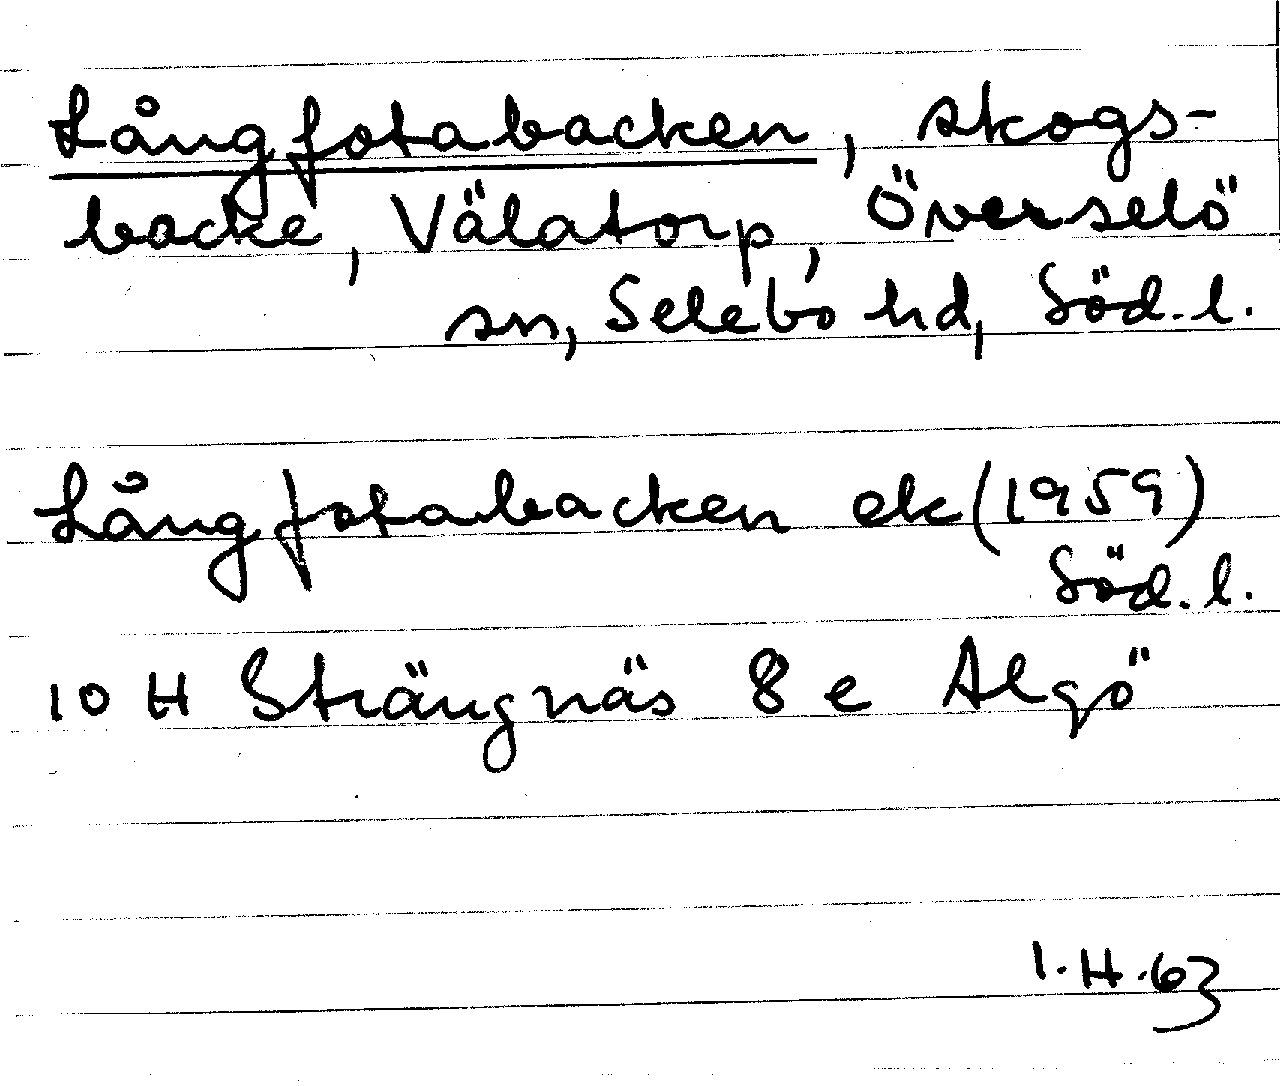 Långfotabacken, skogs-
backe, Välatorp, Överselö
sn, Selebo hd, Söd. l.
Långfotabacken ek (1959)
Söd. l.
10 H Strängnäs 8 e Algö
I. H. 63